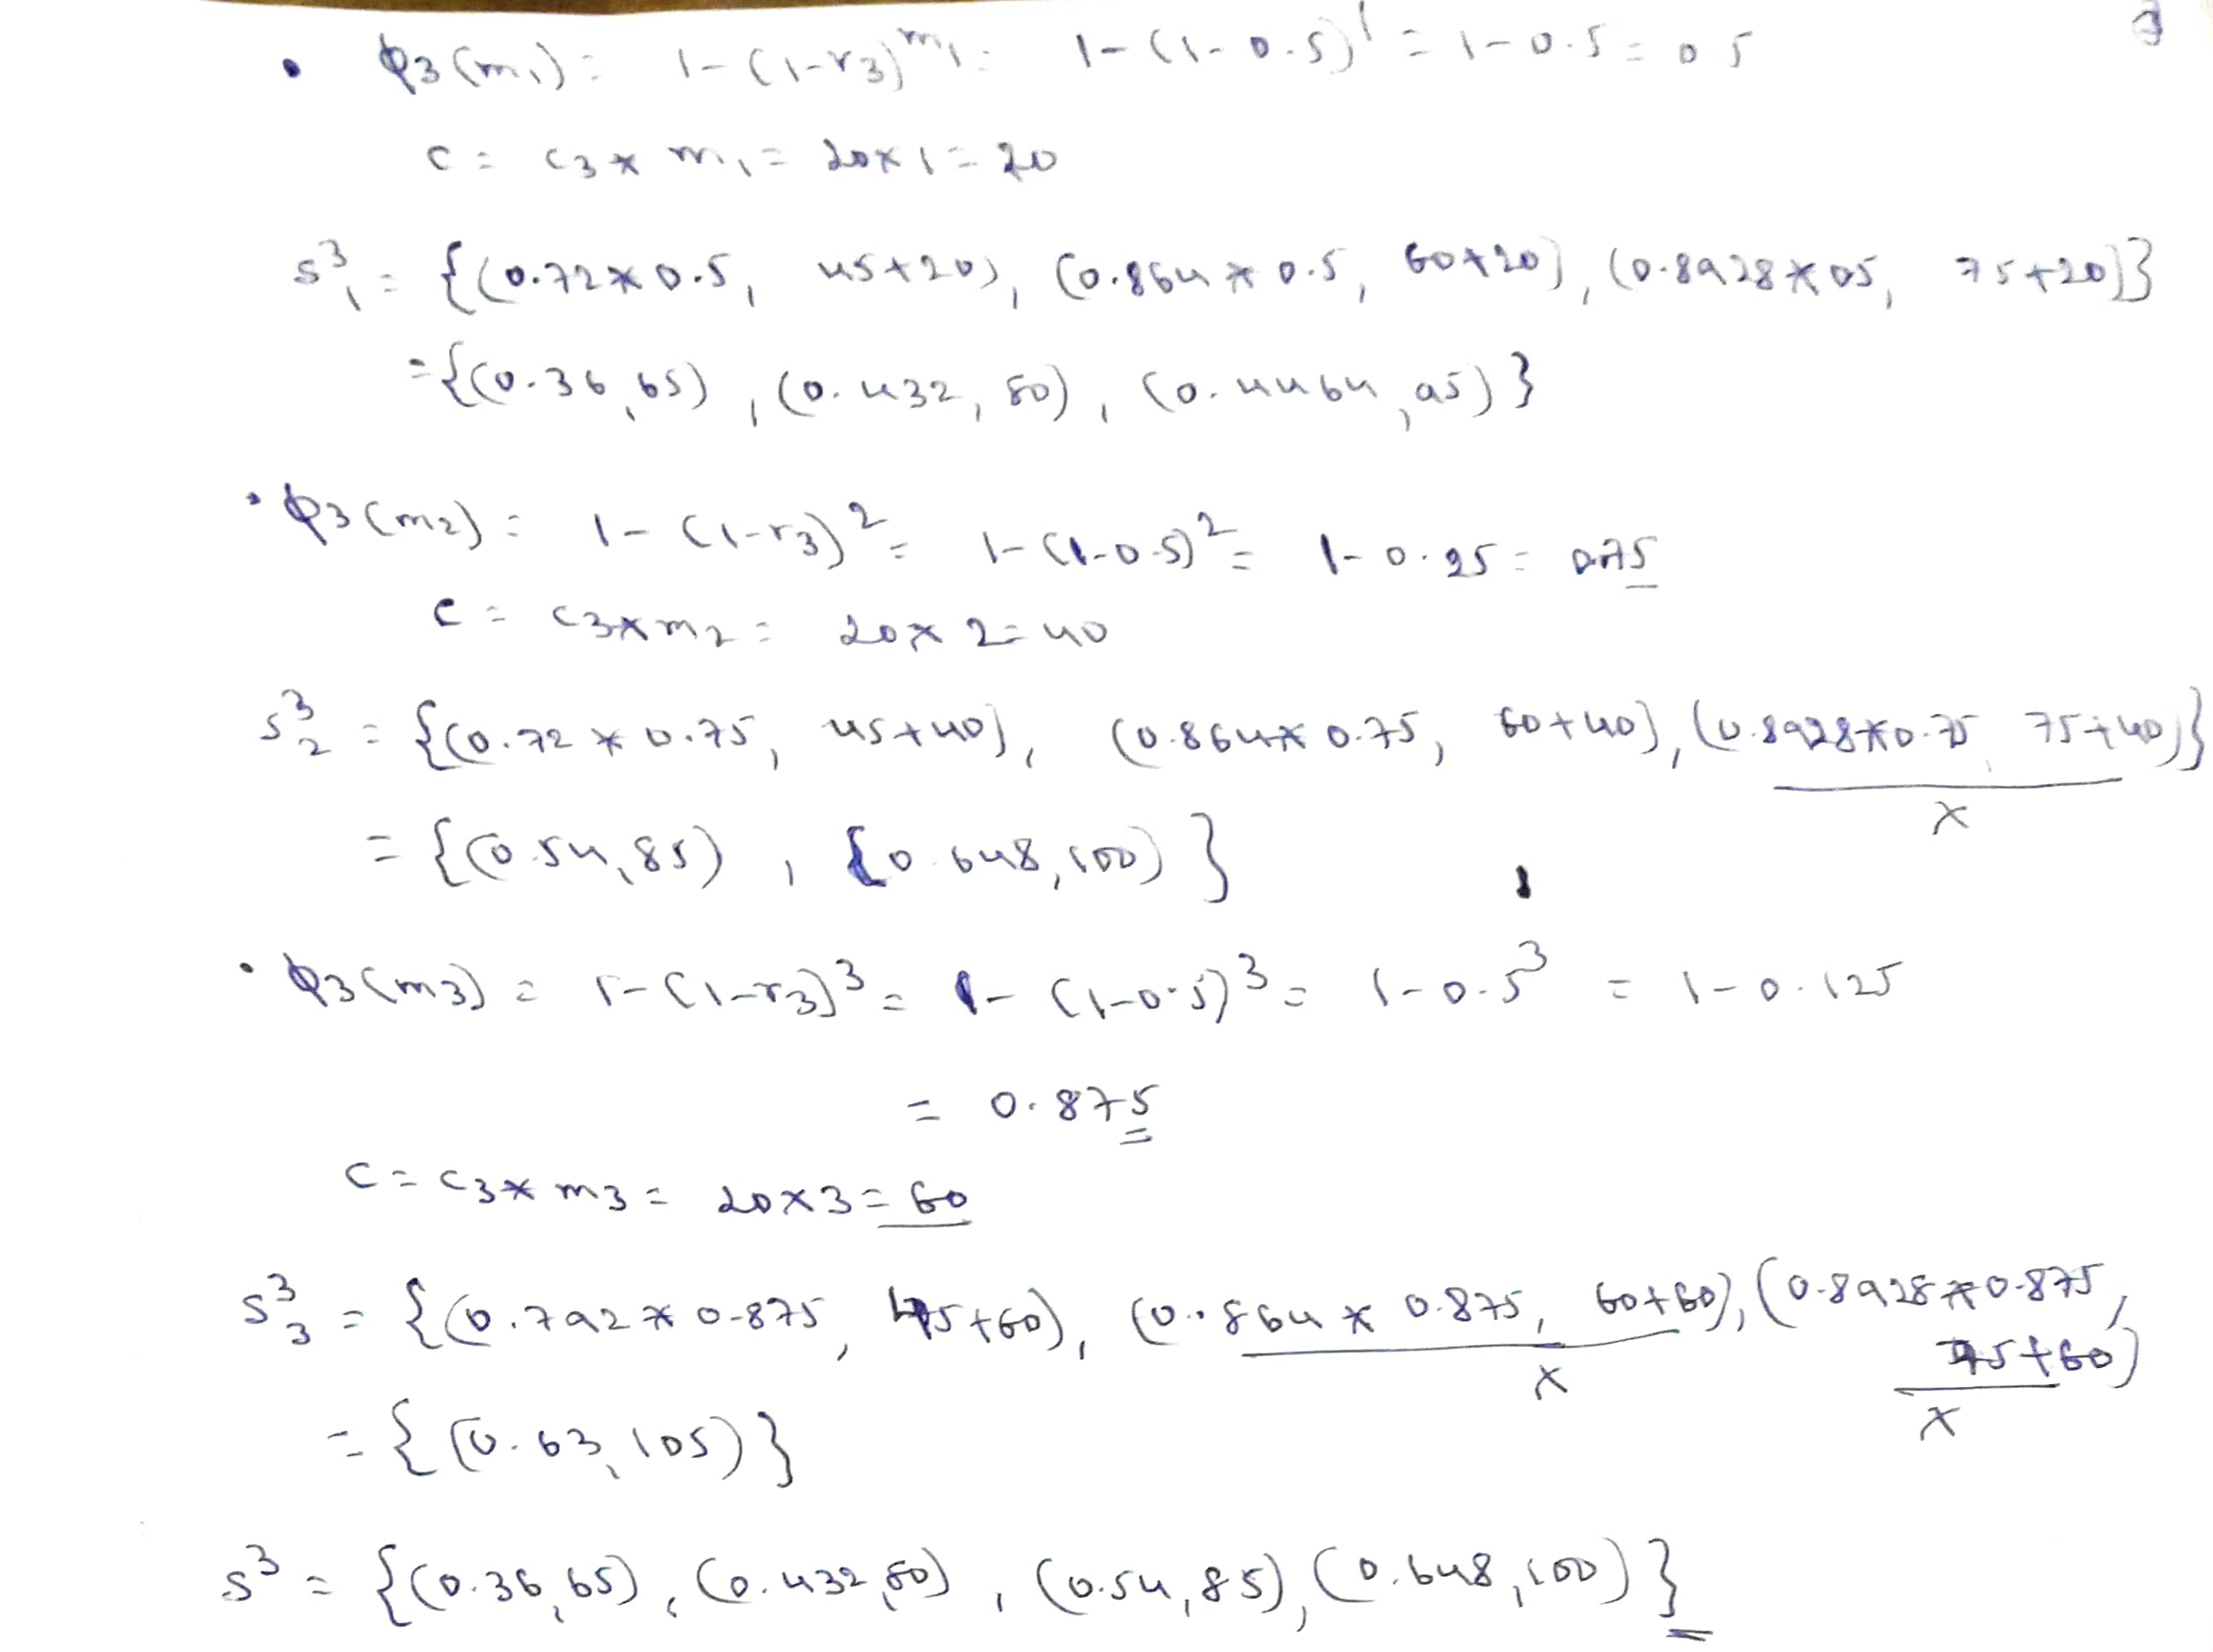 3
• φ3(m1) = 1-(1-r3)^m1 = 1-(1-0.5)^1 = 1-0.5 = 0.5
c = c3 * m1 = 20×1 = 20
S^3_1 = {(0.72*0.5, 45+20), (0.864*0.5, 60+20), (0.8928*05, 75+20)}
= {(0.36,65), (0.432, 80), (0.4464,95)}
• φ3(m2) = 1-(1-r3)^2 = 1-(1-0.5)^2 = 1-0.25 = 0.75
c = c3*m2 = 20×2 = 40
S^3_2 = {(0.72*0.75, 45+40), (0.864*0.75, 60+40), (0.8928*0.75, 75+40)}
x
= {(0.54,85), (0.648,100)}
• φ3(m3) = 1-(1-r3)^3 = 1-(1-0.5)^3 = 1-0.5^3 = 1-0.125
= 0.875
c = c3*m3 = 20×3 = 60
S^3_3 = {(0.792*0.875, 45+60), (0.864*0.875, 60+60), (0.8928*0.875,
75+60)
x x
= {(0.63,105)}
S^3 = {(0.36,65), (0.432,80), (0.54,85), (0.648,100)}